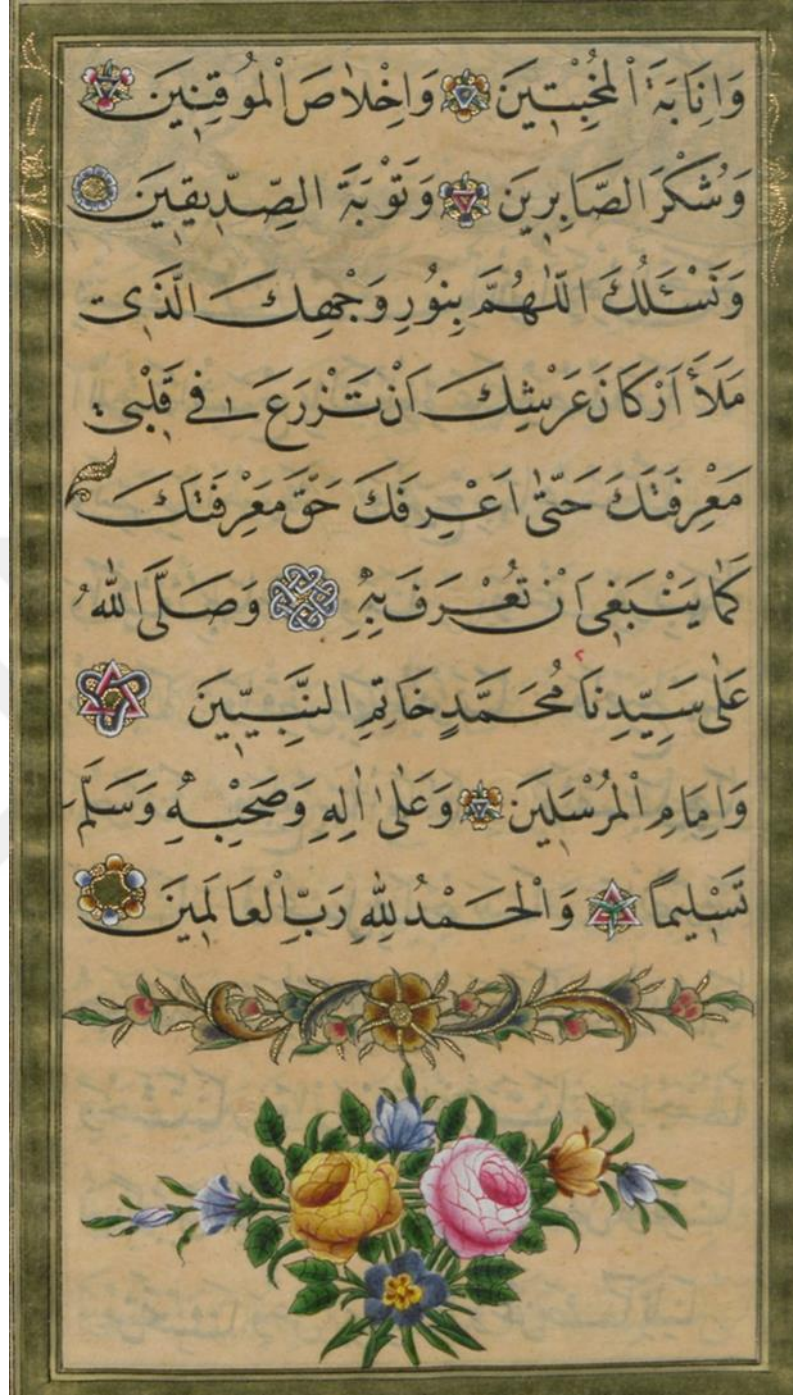 وَاِنَابَةَ الْمُخْبِتٖينَ وَاِخْلَاصَ الْمُوقِنٖينَ
وَشُكْرَ الصَّابِرٖينَ وَتَوْبَةَ الصِّدّٖيقٖينَ
وَنَسْـَٔلُكَ اللّٰهُمَّ بِنُورِ وَجْهِكَ الَّذٖى
مَلَأَ اَرْكَانَ عَرْشِكَ اَنْ تَزْرَعَ فٖى قَلْبٖى
مَعْرِفَتَكَ حَتّٰى اَعْرِفَكَ حَقَّ مَعْرِفَتِكَ
كَمَا يَنْبَغٖى اَنْ تُعْرَفَ بِهٖ وَصَلَّى اللّٰهُ
عَلٰى سَيِّدِنَا مُحَمَّدٍ خَاتِمِ النَّبِيّٖينَ
وَاِمَامِ الْمُرْسَلٖينَ وَعَلٰى اٰلِهٖ وَصَحْبِهٖ وَسَلَّمَ
تَسْلٖيمًا وَالْحَمْدُ لِلّٰهِ رَبِّ الْعَالَمٖينَ